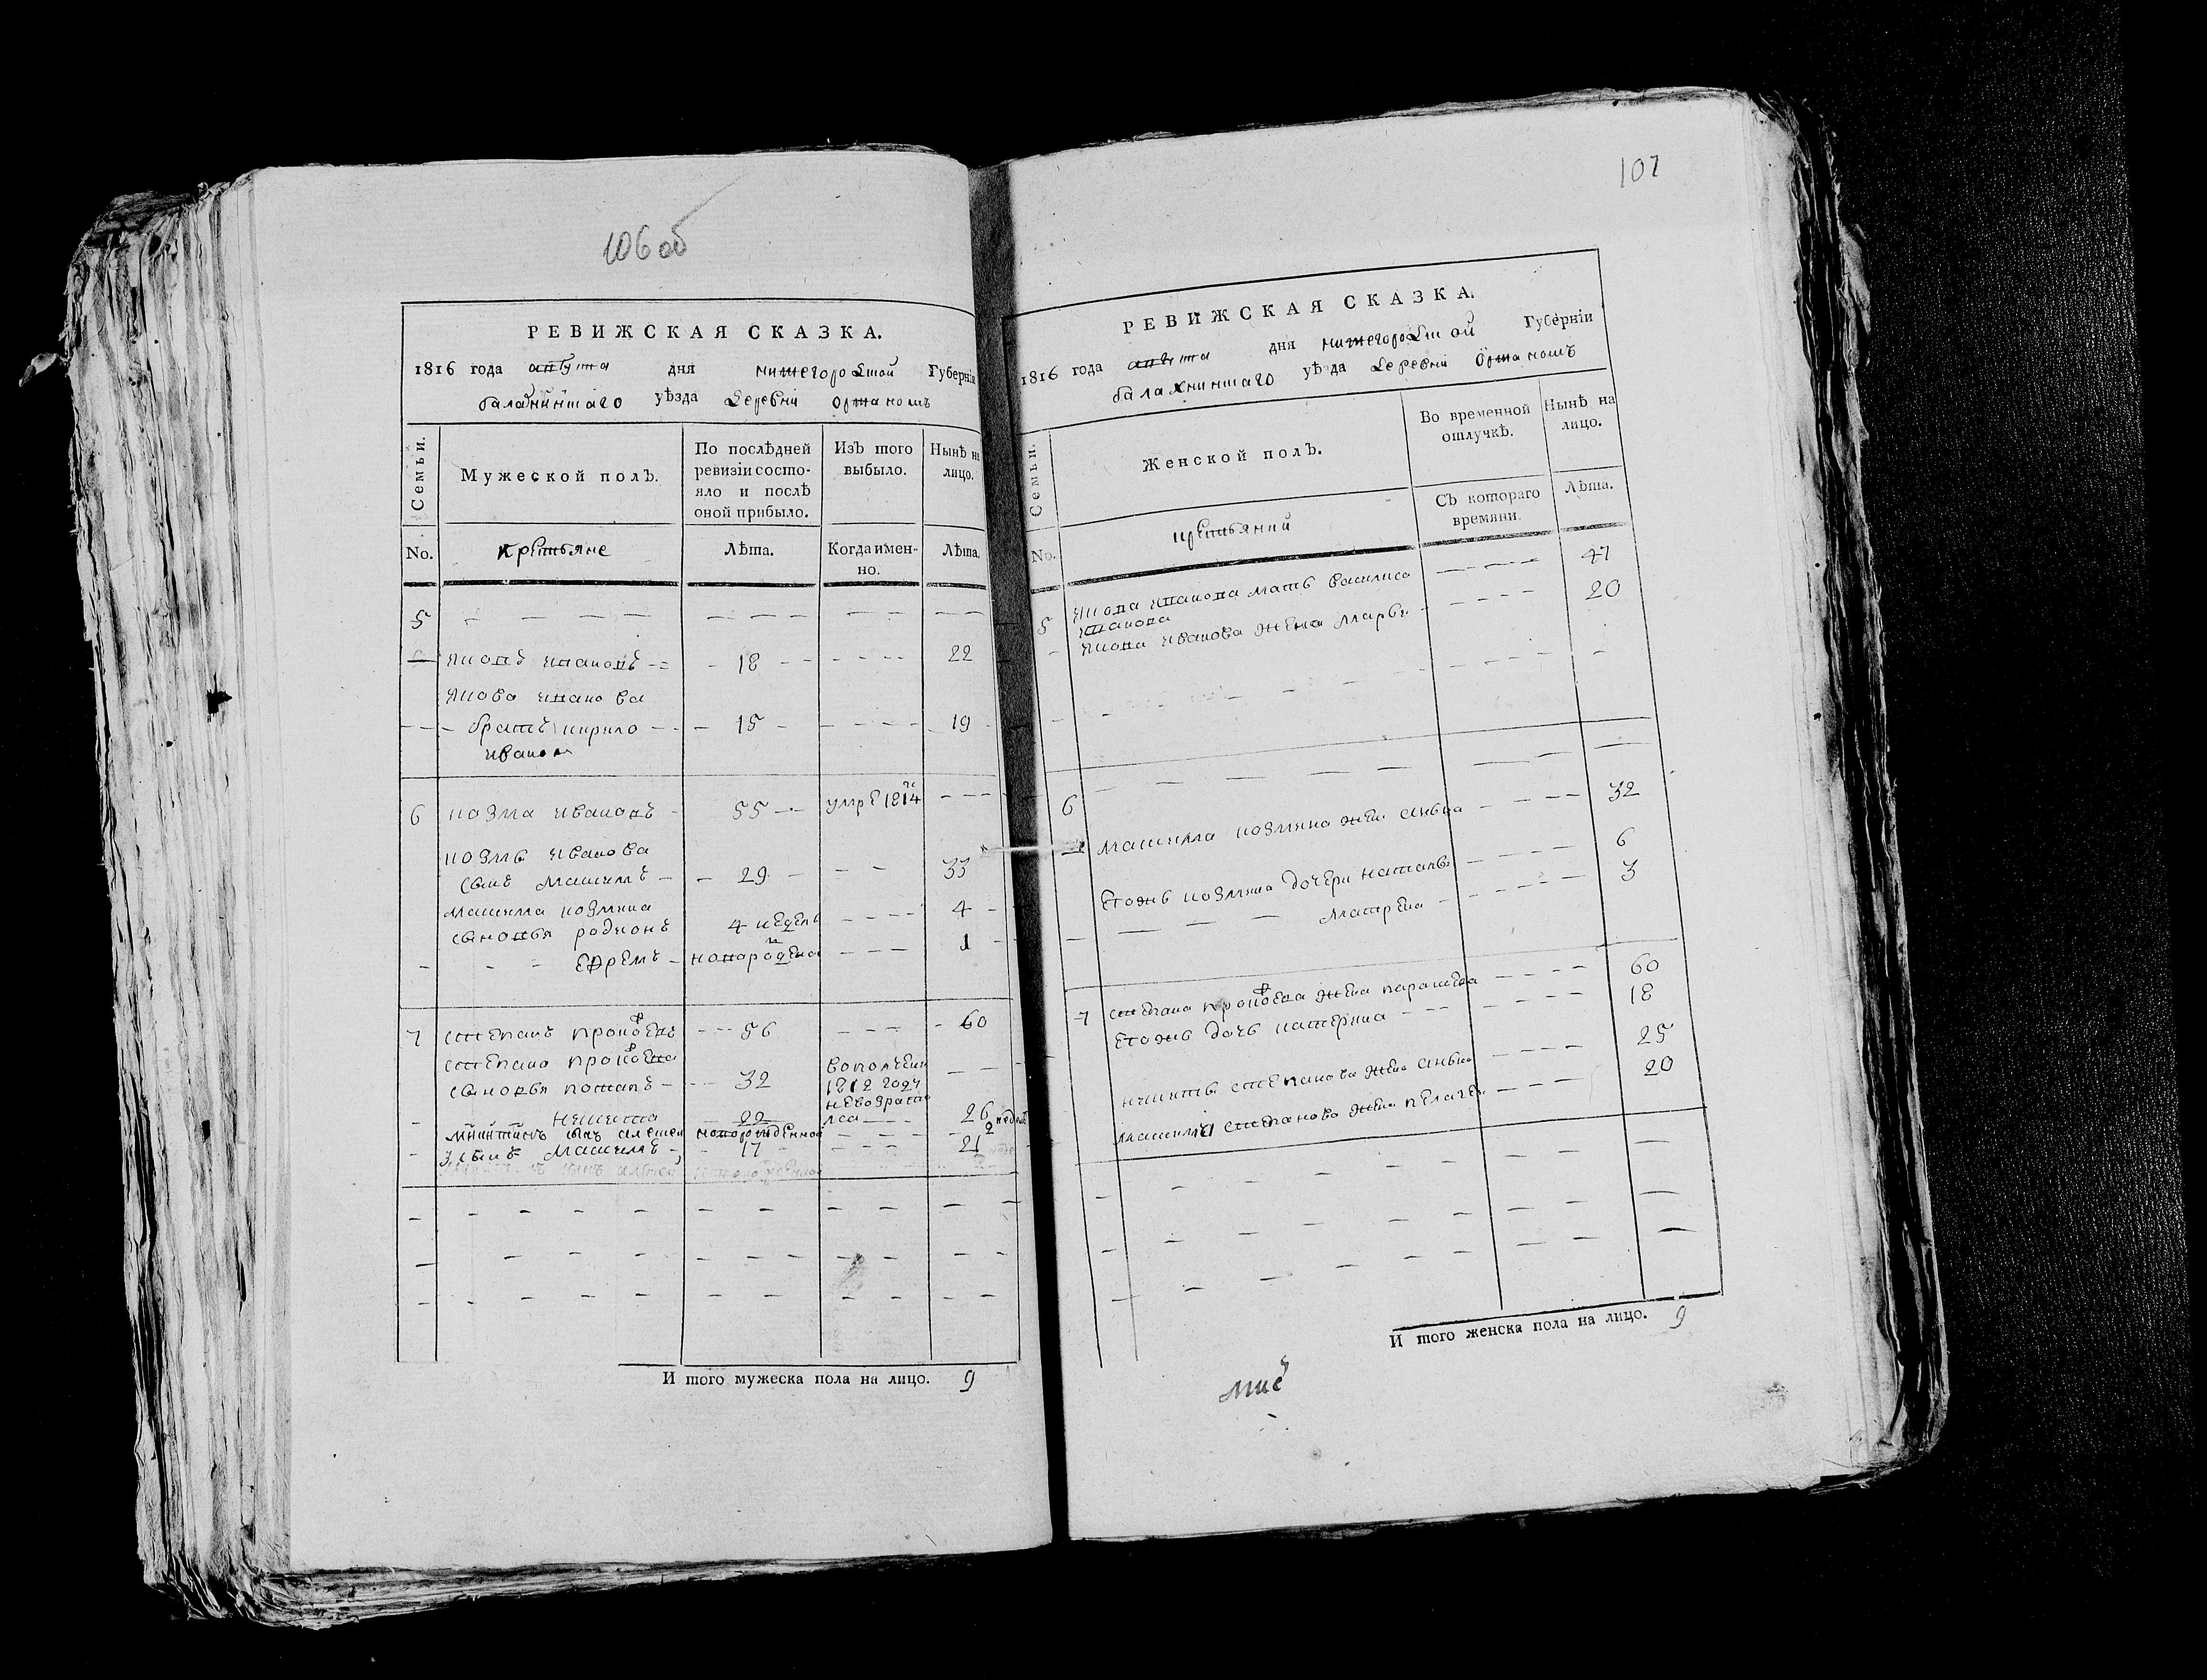 106 об
РЕВИЖСКАЯ СКАЗКА.
1816 года августа дня нижегородской Губерніи
балахнинскаго уѣзда деревни
Семьи.
Мужеской полъ.
По послѣдней ревизіи состо-
яло и послѣ
оной прибыло.
Изъ того
выбыло.
Нынѣ на
лицо.
No. крестьяне Лѣта. Когда имен-
но. Лѣта.
5
яковъ ивановъ 18 22
якова иванова
братъ кирило 15 19
иванов
6 козма ивановъ 55 умре 1814 г
козмы иванова
сынъ максимъ 29 33
максима козмина
сыновья родионъ 4 недель 4
ефремъ новорожденой 1
7 степанъ прокофевъ 56 60
степана прокофева
сыновья потапъ 32 вополчени
1812 году
невозратил
ся
никита 22 26
никитинъ сынъ алексей новорожденной 2 недель
3 сынъ максимъ 17 21
И того мужеска пола на лицо. 9
107
РЕВИЖСКАЯ СКАЗКА.
1816 года августа дня нижегородской Губерніи
балахнинскаго уѣзда деревни
Семьи.
Женской полъ.
Во временной
отлучкѣ.
Нынѣ на
лицо.
No. крестьяний Съ котораго
времяни. Лѣта.
5 якова иванова мать василиса 47
иванова
якова иванова жена марья 20
6
максима козмина жена анна 32
егожъ козмина дочери наталья 6
матрена 3
7 степана прокофева жена парасковя 60
егожъ дочь катерина 18
никиты степанова жена анна 25
максима степанова жена пелагея 20
И того женска пола на лицо. 9